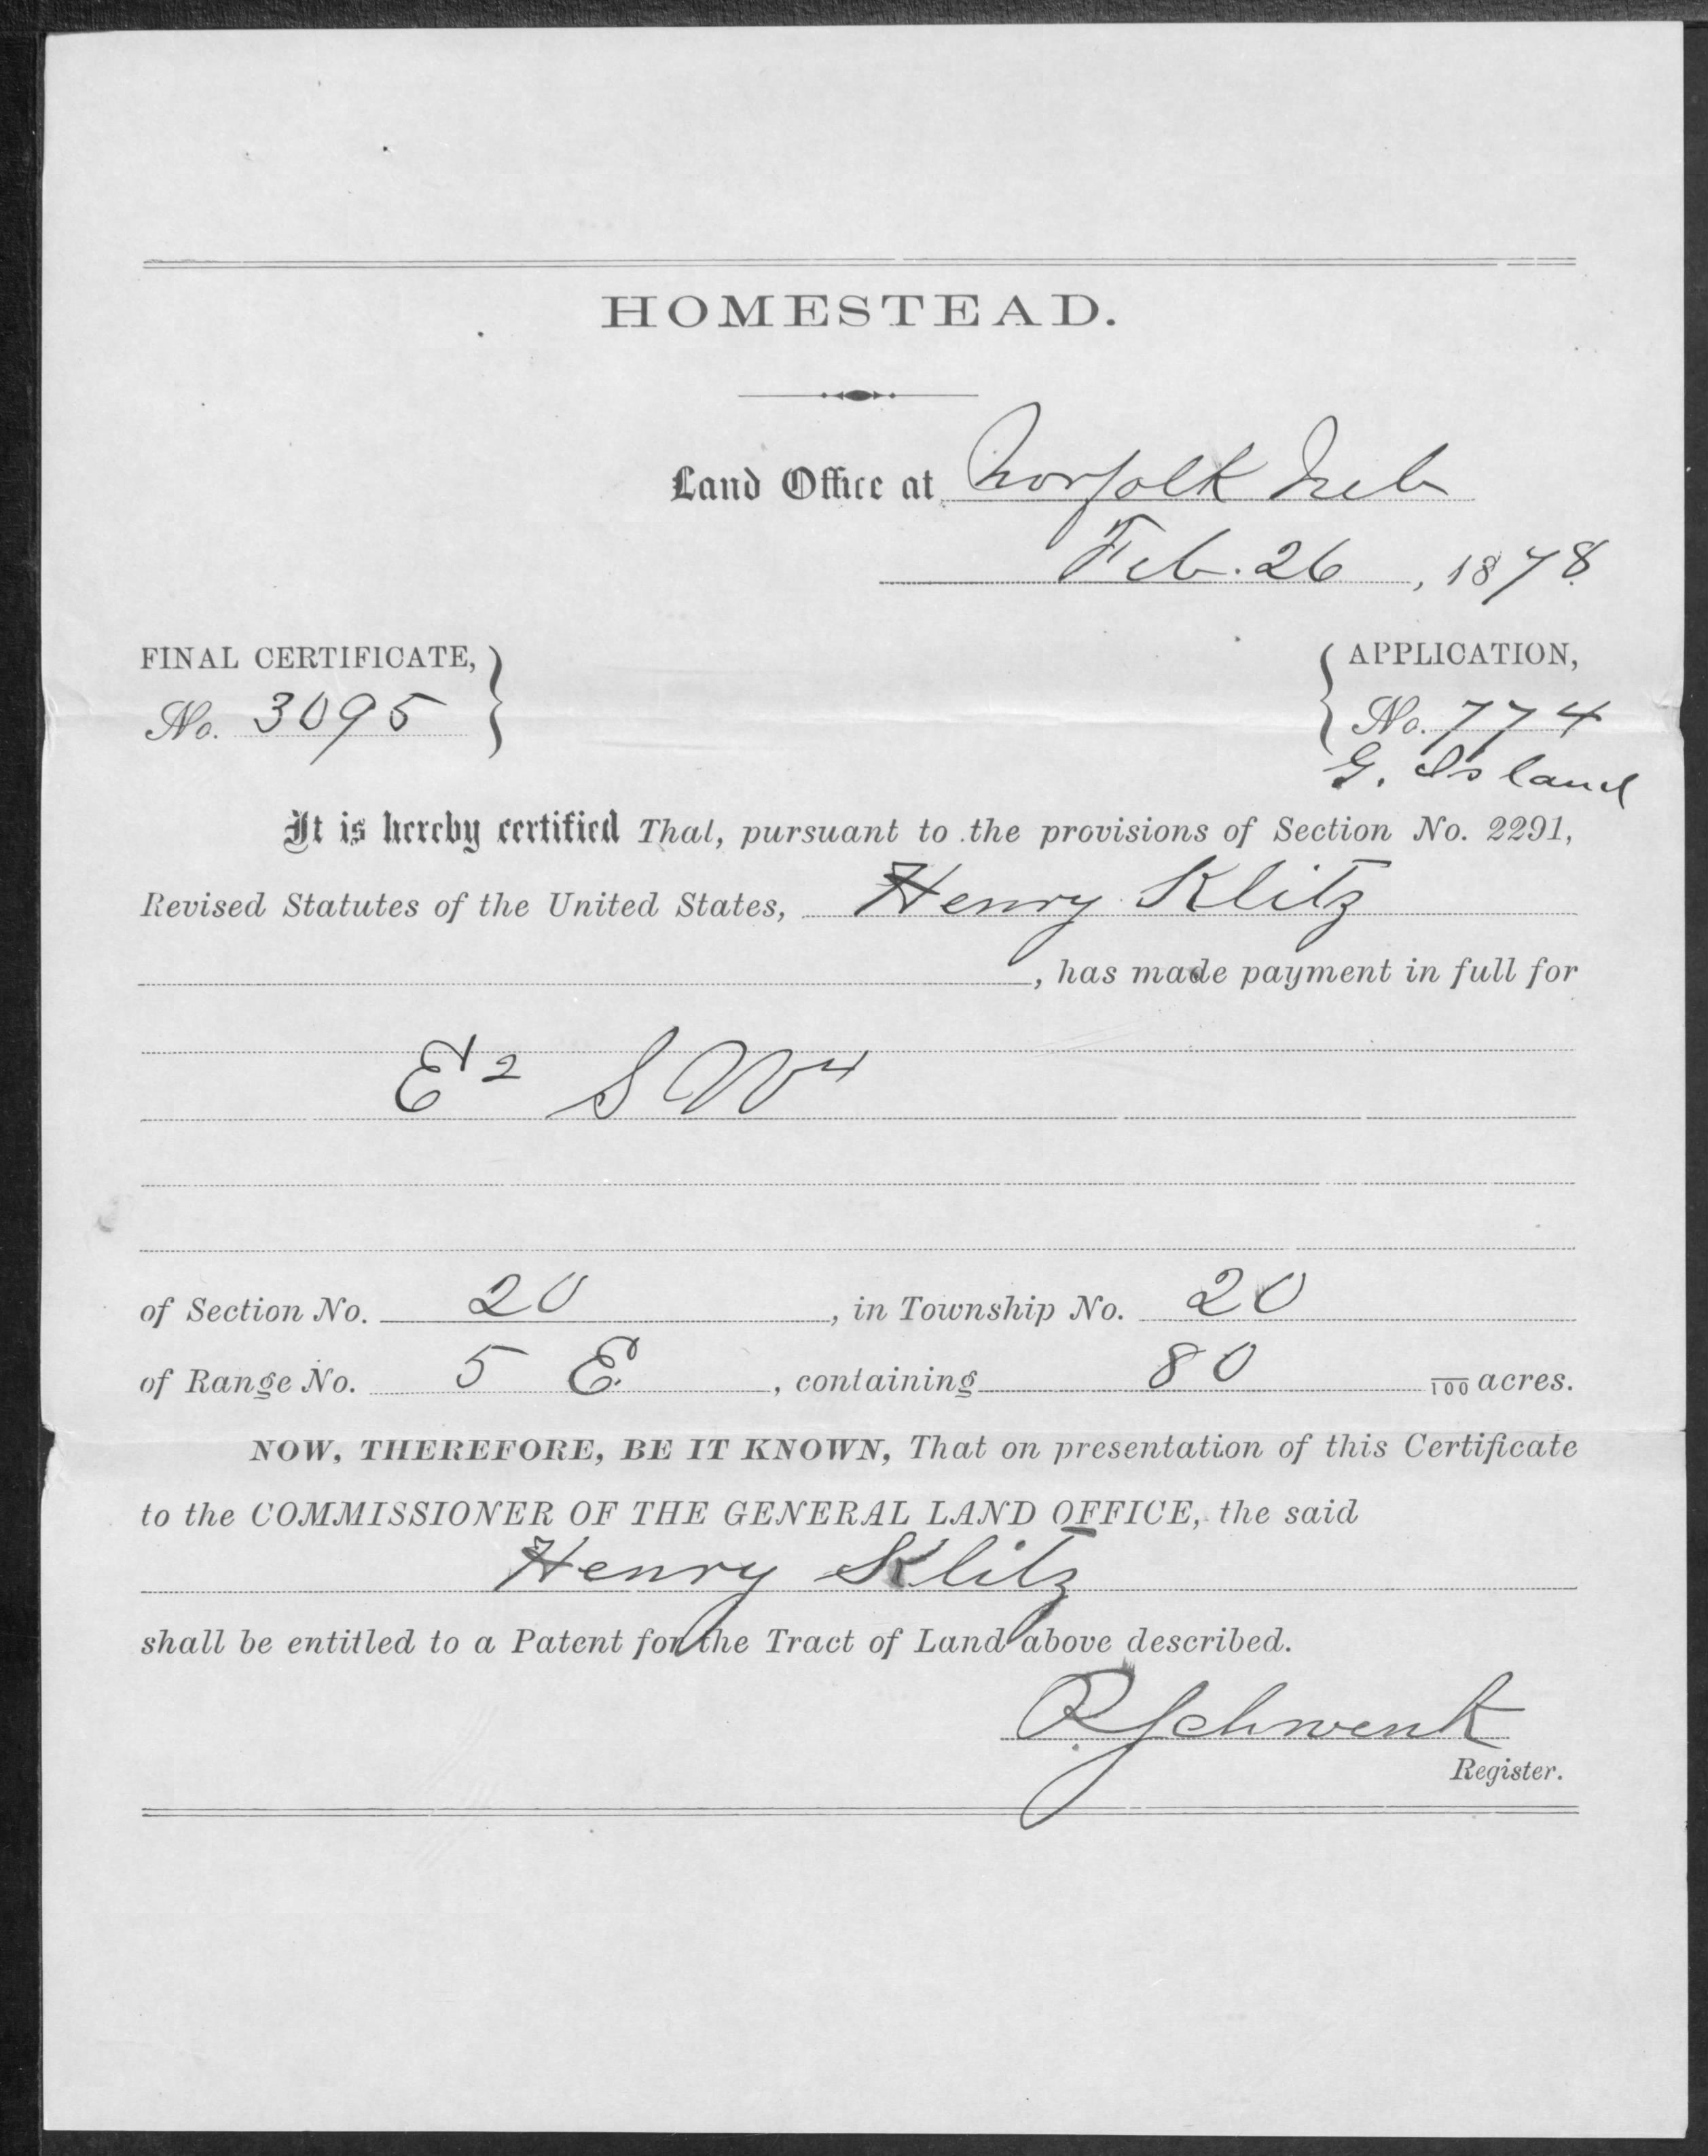 HOMESTEAD.
Land Office at Norfolk Neb
Feb. 26, 1878.
FINAL CERTIFICATE,
No. 3095
APPLICATION,
No. 774
G. Island
It is hereby certified That, pursuant to the provisions of Section No. 2291,
Revised Statutes of the United States, Henry Klitz
, has made payment in full for
E2 SW4
of Section No. 20, in Township No. 20
of Range No. 5 E., containing 80 /100 acres.
NOW, THEREFORE, BE IT KNOWN, That on presentation of this Certificate
to the COMMISSIONER OF THE GENERAL LAND OFFICE, the said
Henry Klitz
shall be entitled to a Patent for the Tract of Land above described.
E. Schwenk
Register.